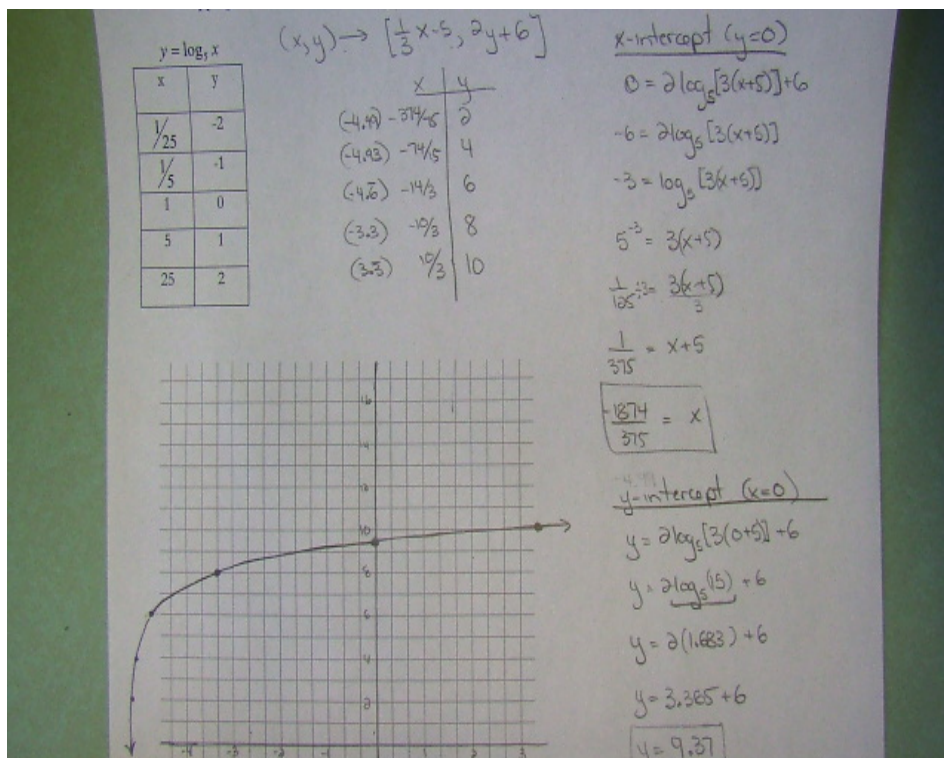 y = log₅ x
x y
1/25 -2
1/5 -1
1 0
5 1
25 2
(x,y) → [1/3 x-5, 2y+6]
x y
(-4.99) -374/75 2
(-4.93) -74/15 4
(-4.6̄) -14/3 6
(-3.3) -10/3 8
(3.3̄) 10/3 10
x-intercept (y=0)
0 = 2log₅[3(x+5)]+6
-6 = 2log₅[3(x+5)]
-3 = log₅[3(x+5)]
5⁻³ = 3(x+5)
1/125 ÷3 = 3(x+5)/3
1/375 = x+5
-1874/375 = x
y-intercept (x=0)
y = 2log₅[3(0+5)]+6
y = 2log₅(15) +6
y = 2(1.683) +6
y = 3.365+6
y = 9.37
16
14
12
10
8
6
4
2
-4 -3 -2 -1 1 2 3